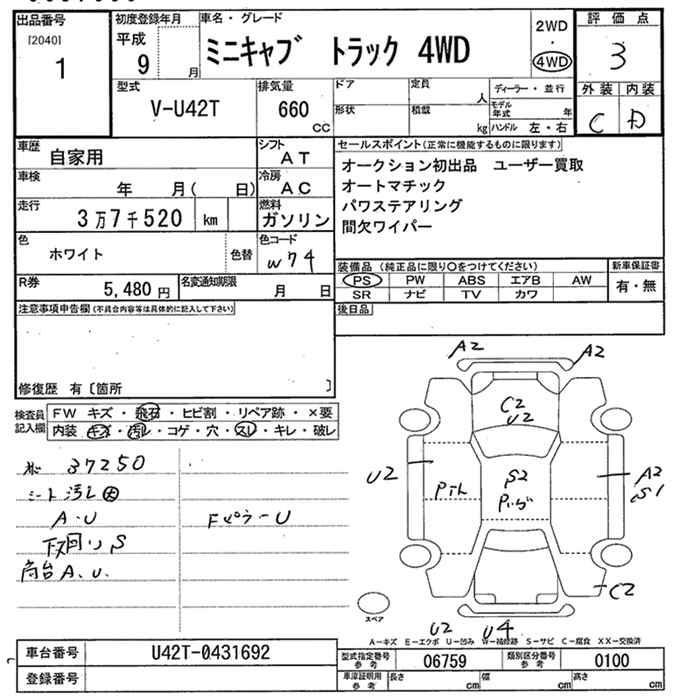 出品番号
[2040]
1
初度登録年月
平成
9
月
車名・グレード
ミニキャブ トラック 4WD
2WD
・
4WD
評価点
3
外装 内装
C D
型式
V-U42T
排気量
660
cc
ドア
形状
定員
人
積載
kg
ディーラー・並行
モデル年式
年
ハンドル 左・右
車歴
自家用
シフト
AT
車検
年 月( 日)
冷房
AC
走行
3万7千520 km
燃料
ガソリン
色
ホワイト
色替
色コード
W74
R券
5,480円
名変通知期限
月 日
セールスポイント(正常に機能するものに限ります)
オークション初出品 ユーザー買取
オートマチック
パワステアリング
間欠ワイパー
装備品 (純正品に限り○をつけてください)
PS PW ABS エアB AW
SR ナビ TV カワ
新車保証書
有・無
後日品
注意事項申告欄(不具合内容等は具体的に記入して下さい)
修復歴 有〔箇所 〕
検査員記入欄
FW キズ・飛石・ヒビ割・リペア跡・×要
内装 キズ・汚レ・コゲ・穴・スレ・キレ・破レ
37250
シート汚レ
A・U
Fピラー U
下廻り S
荷台 A、U、
A2
A2
C2
U2
U2
S2
A2
S1
C2
U2
U4
スペア
A-キズ E-エクボ U-凹み W-補修跡 S-サビ C-腐食 XX-交換済
車台番号
U42T-0431692
登録番号
型式指定番号
参考
06759
類別区分番号
参考
0100
車庫証明用
参考
長さ
cm
幅
cm
高さ
cm